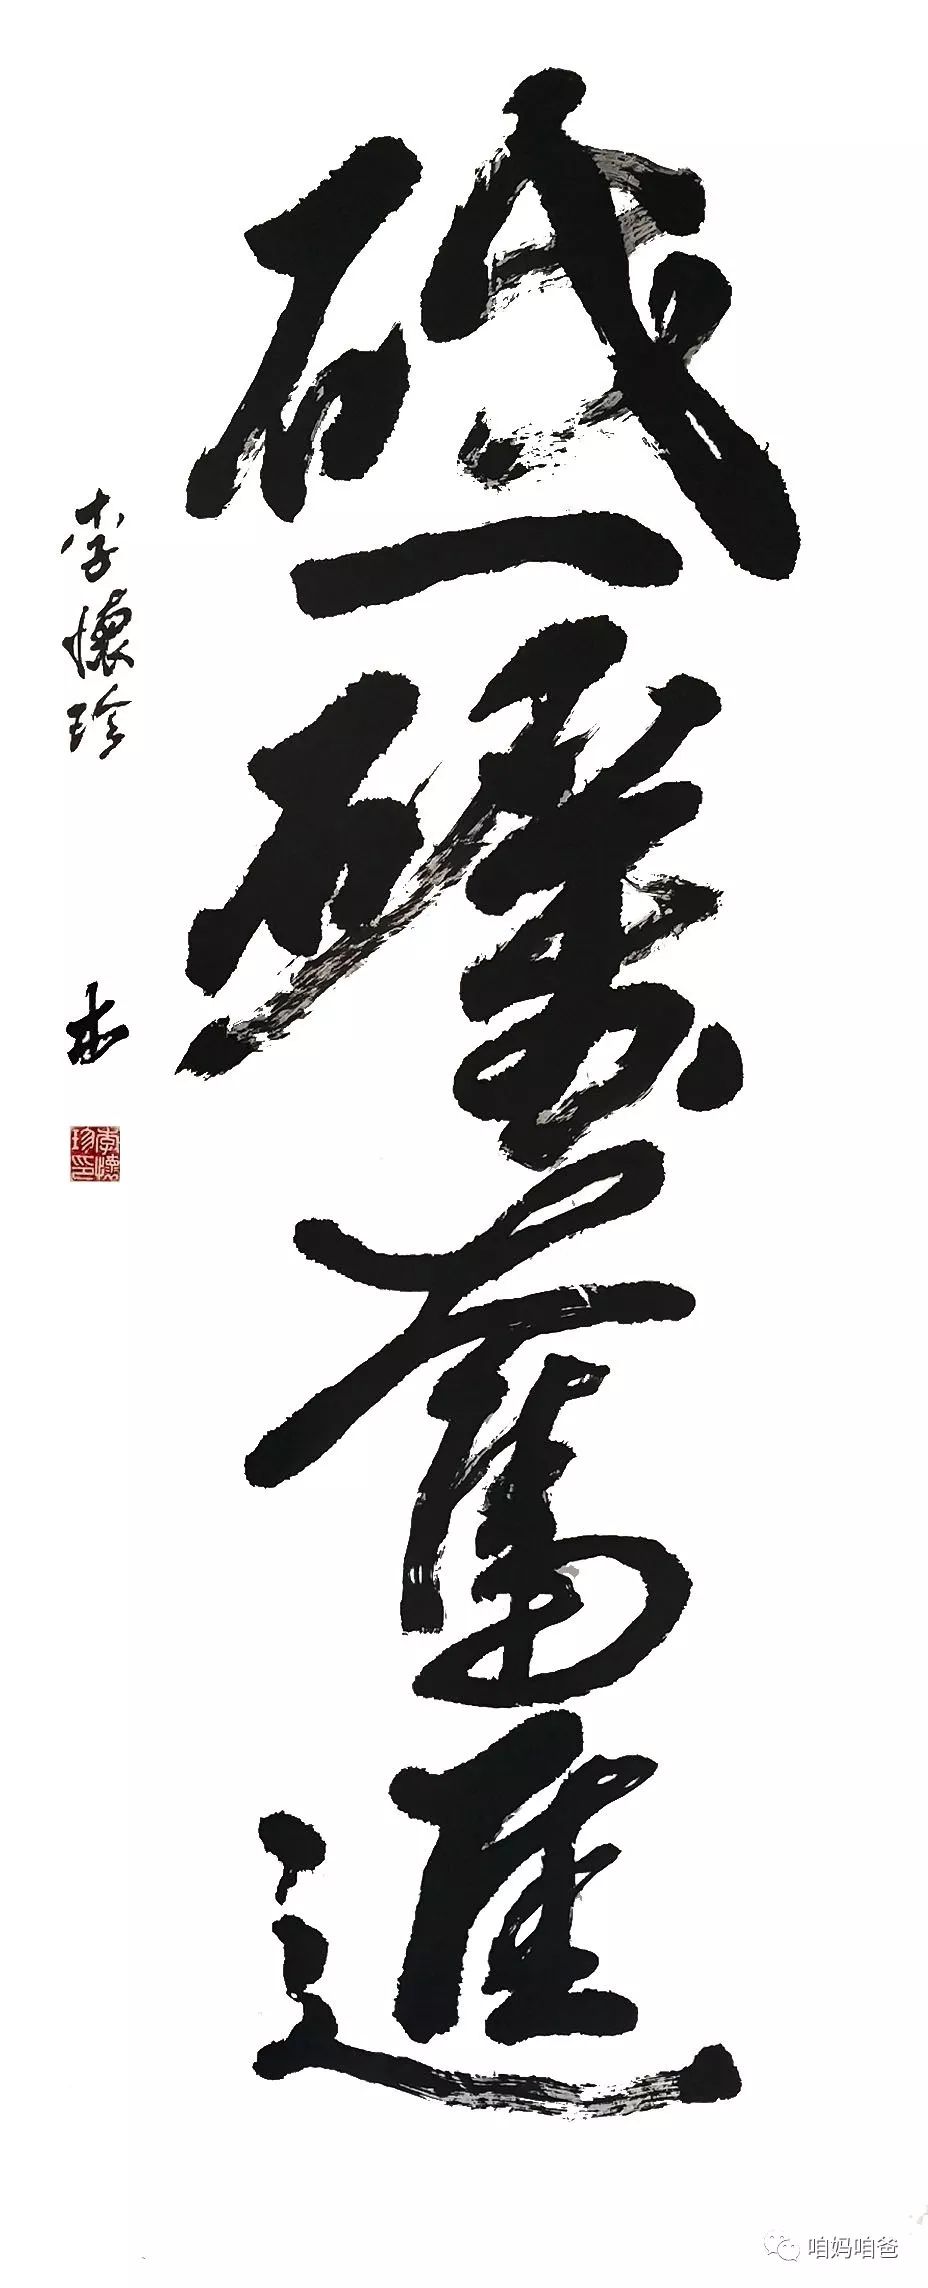 砥礪奮進
李懷珍
書
李懷珍印
咱妈咱爸